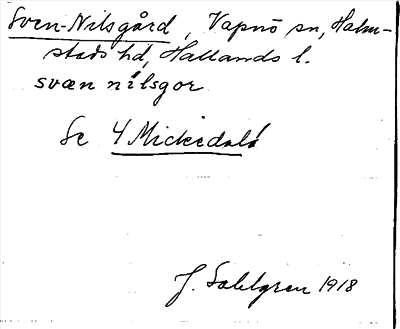 Sven-Nilsgård, Vapnö sn, Halm-
stads hd, Hallands l.
svæn nilsgor
Se 4 Mickedala
J. Sahlgren 1918